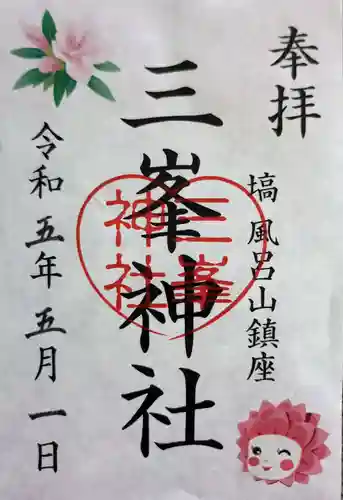 奉拝
塙 風呂山鎮座
三峯神社
三峯
神社
令和五年五月一日